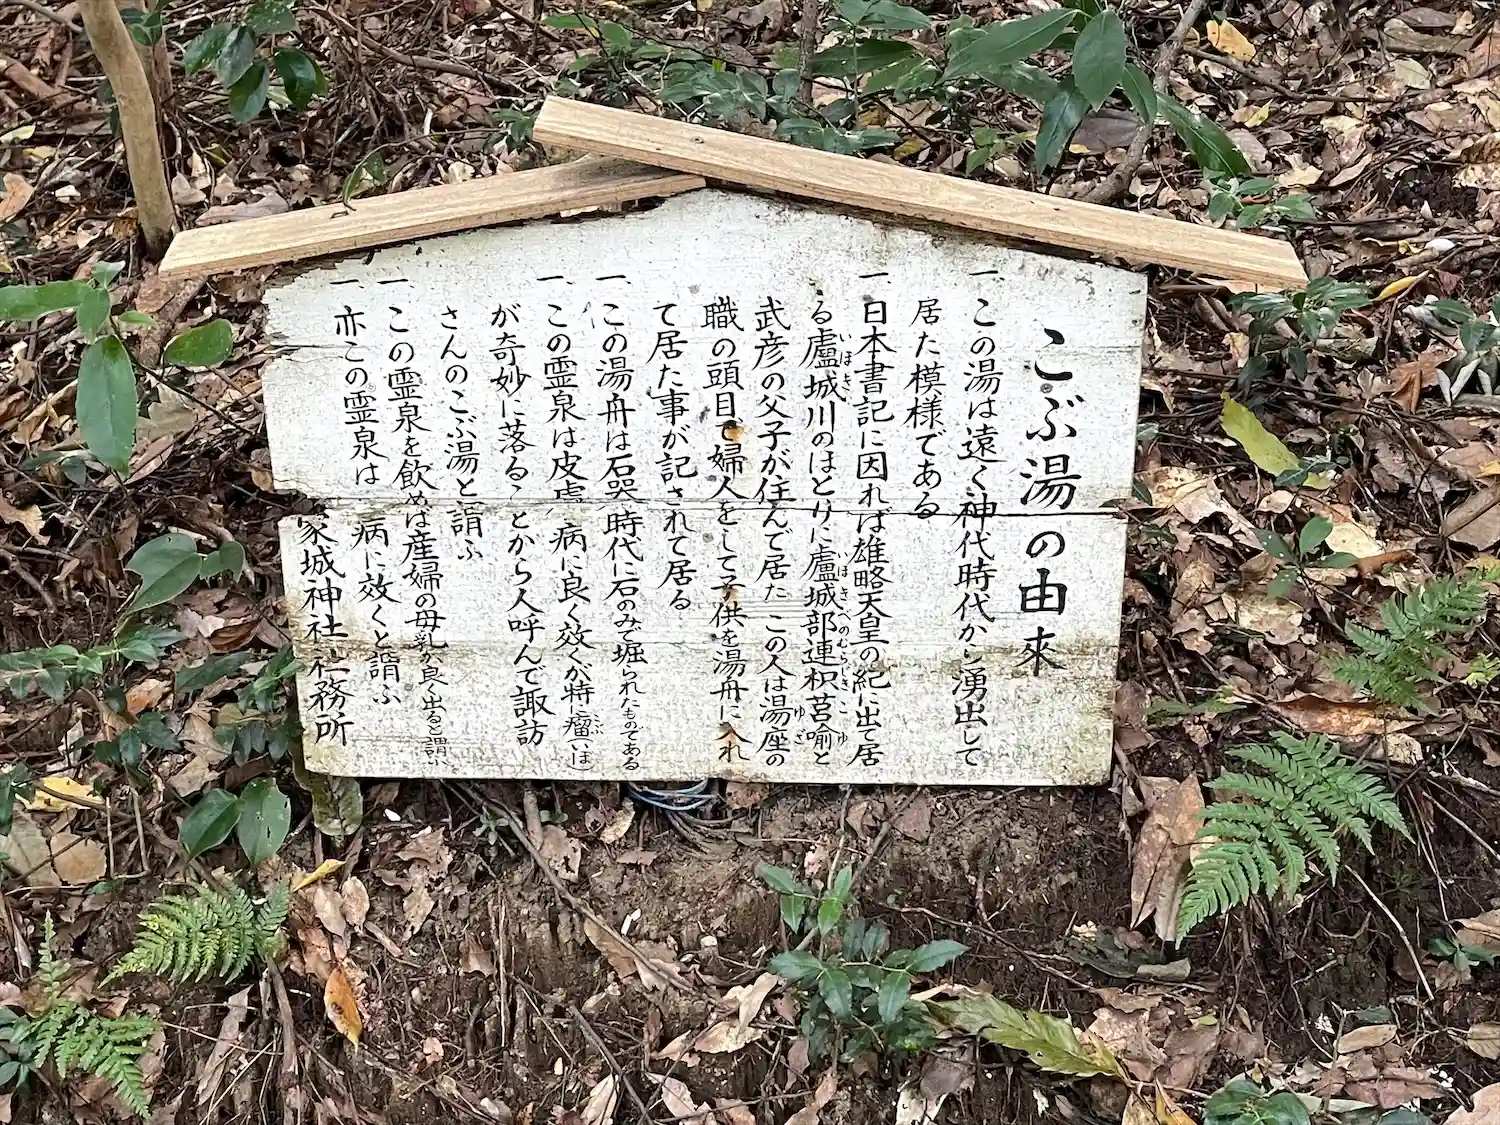 こぶ湯の由來
一、この湯は遠く神代時代から湧出して
居た模様である
一、日本書記に因れば雄略天皇の紀に出て居
る盧城川のほとりに盧城部連枳莒喩と
いほき いほきべのむらじきこゆ
武彦の父子が住んで居た この人は湯座の
ゆざ
職の頭目で婦人をして子供を湯舟に入れ
て居た事が記されて居る
一、この湯舟は石器時代に石のみで堀られたものである
一、この霊泉は皮膚病に良く效くが特に瘤(いぼ)
こぶ
が奇妙に落ることから人呼んで諏訪
さんのこぶ湯と謂ふ
一、この霊泉を飲めば産婦の母乳が良く出ると謂い
一、亦この霊泉は 病に效くと謂ふ
家城神社社務所